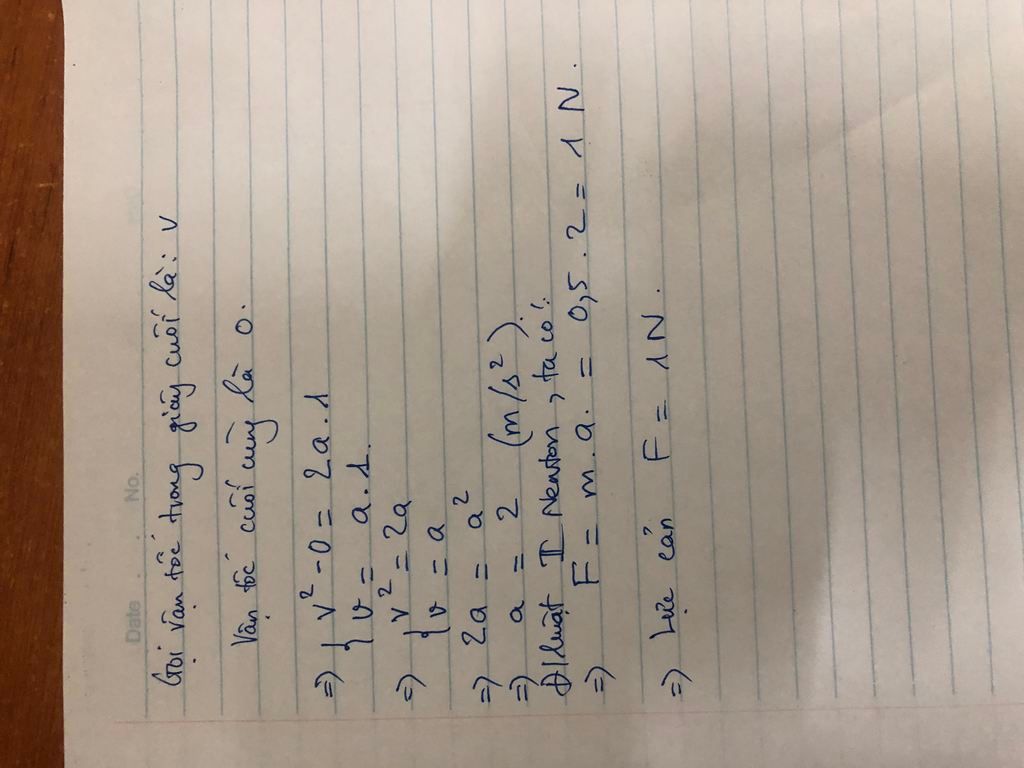 Date No.
Gọi vận tốc trong giây cuối là: v
Vận tốc cuối cùng là 0.
=> { v² - 0 = 2a.1
v = a.1.
=> { v² = 2a
v = a
=> 2a = a²
=> a = 2 (m/s²).
Đ/luật II Newton, ta có:
=> F = m.a. = 0,5.2 = 1 N.
=> Lực cản F = 1N.